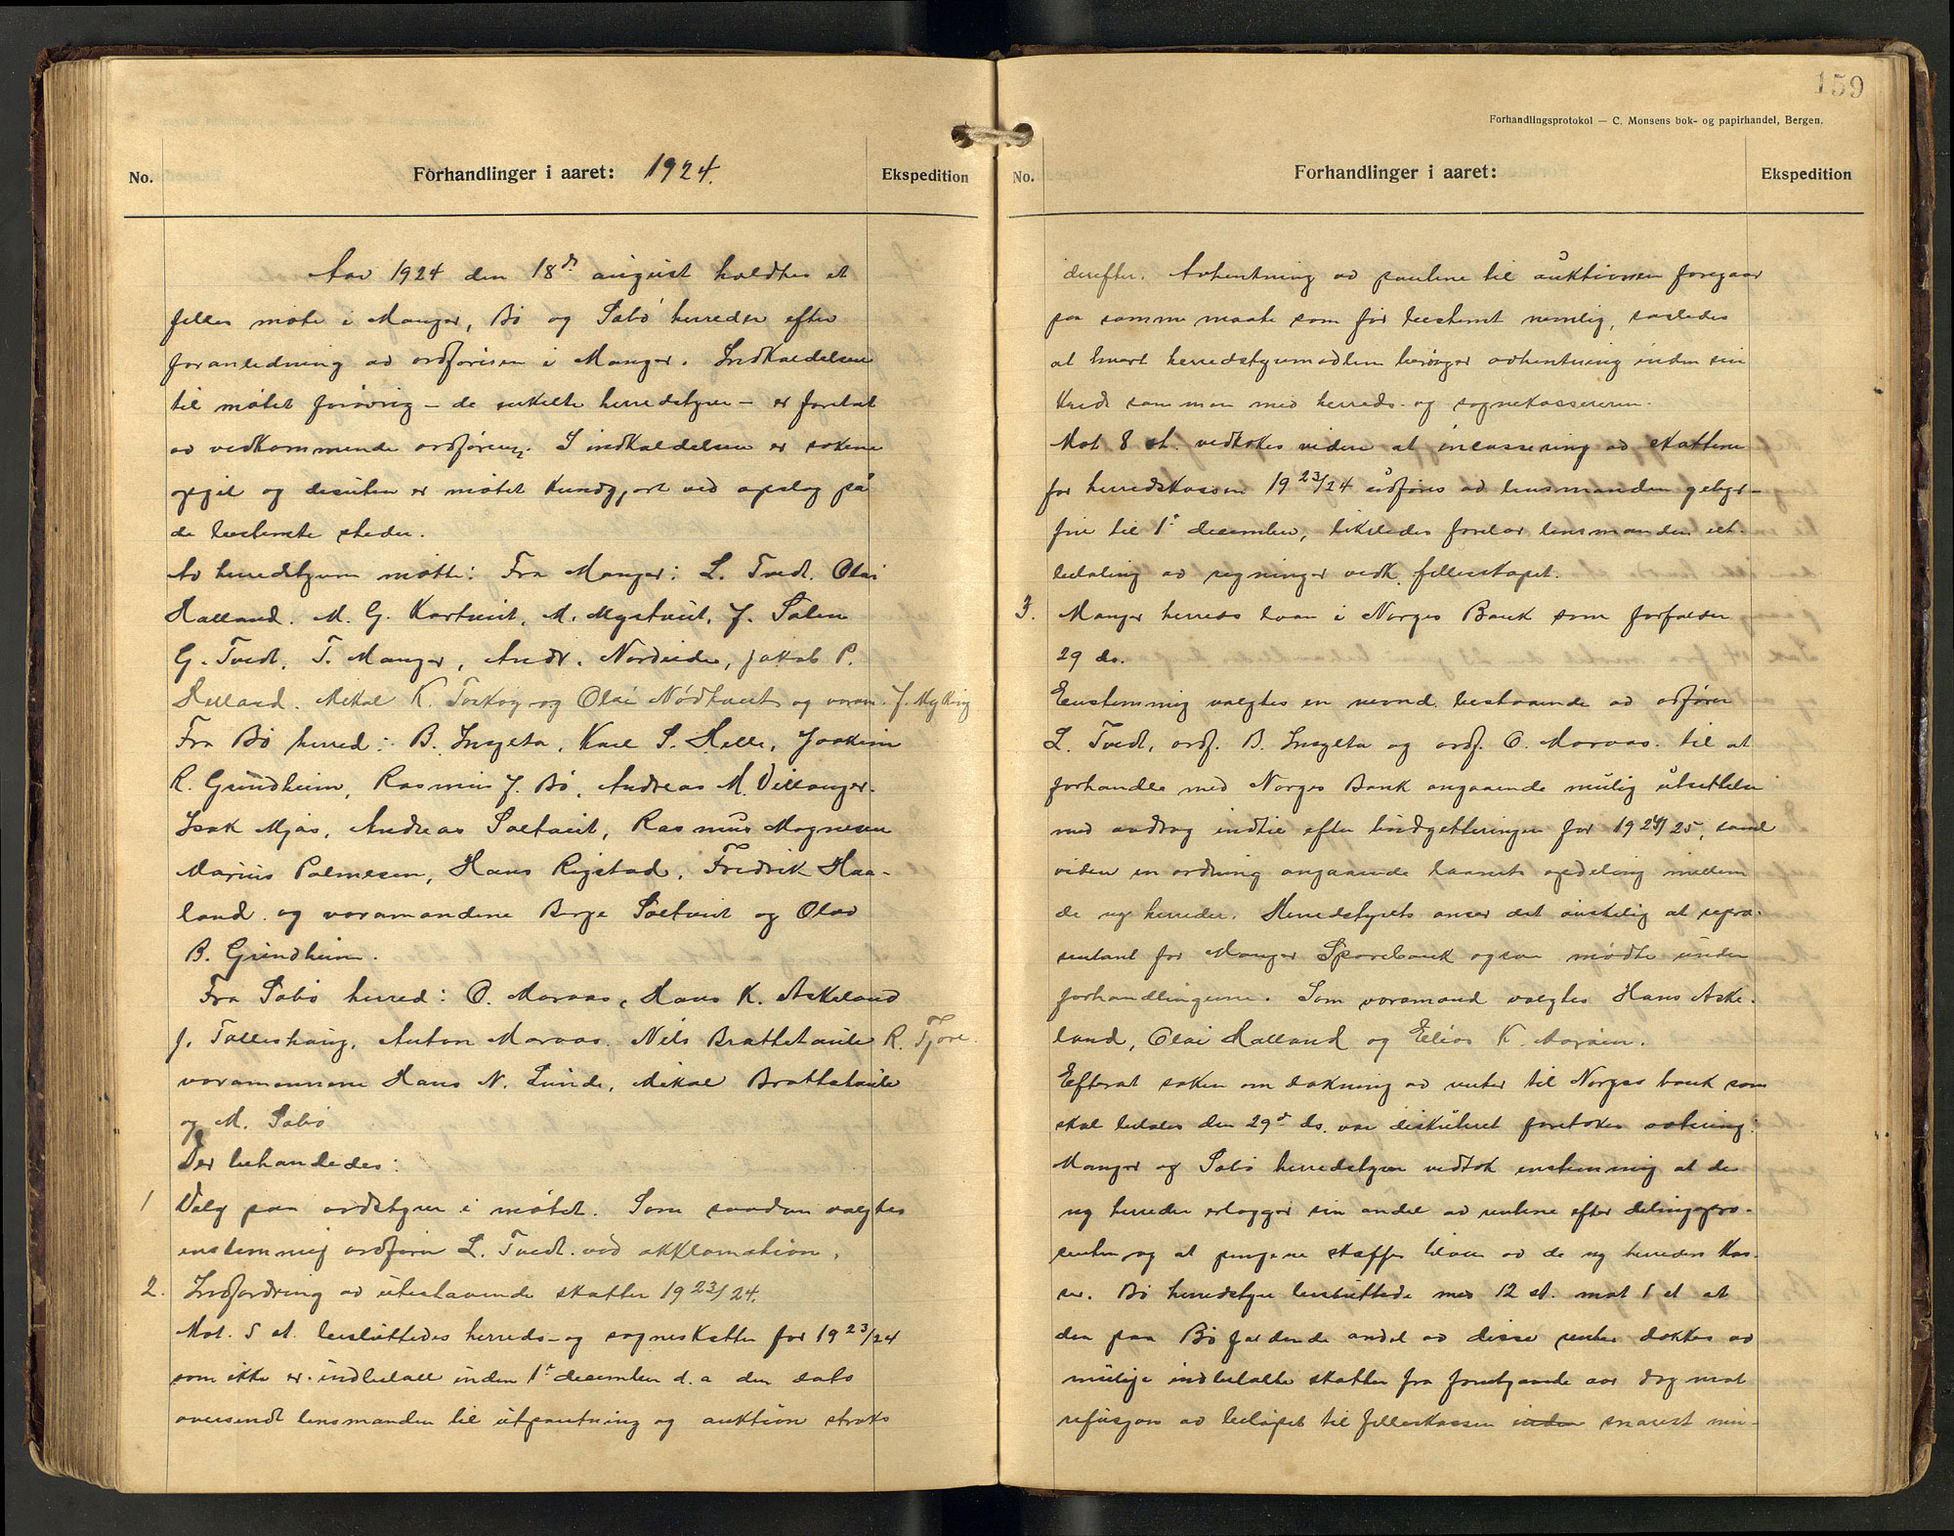 No.
Forhandlinger i aaret: 1924.
Ekspedition
Aar 1924 den 18de august holdtes et
felles møte i Manger, Bø og Sæbø herreder efter
foranledning av ordføreren i Manger. Indkaldelsen
til møtet forøvrig - de enkelte herredstyrer - er foretat
av vedkommende ordførere. I indkaldelsen er sakene
opgit og desuten er møtet kundgjort ved opslag på
de bestemte steder.
Av herredstyrerne møtte: Fra Manger: L. Tvedt. Olai
Halland. M. G. Kartveit, M. Mystveit, J. Solem
G. Tvedt, T. Manger, Andr. Nordeide, Jakob P.
Helland. Mikal K. Toskog og Olai Nødtveit og varam. J. Mykking
Fra Bø herred: B. Snylta, Karl S. Helle, Joakim
R. Grindheim, Rasmus J. Bø, Andreas M. Villanger.
Isak Mjøs, Andreas Soltveit, Rasmus Magnesen
Marius Palmesen, Hans Rigstad, Fredrik Haa-
land og varamændene Børge Soltveit og Olav
B. Grindheim.
Fra Sæbø herred: O. Maraas, Hans K. Askeland
J. Tolleshaug, Anton Maraas, Nils Brattetaule R. Fjore.
varamennene Hans N. Lunde, Mikal Brattetaule
og M. Sæbø
Der behandledes:
1 Valg paa ordstyrer i møtet. Som saadan valgtes
enstemmig ordfører L. Tvedt ved akklamation.
2. Indfordring av utestaaende skatter 1923/24.
Mot 5 st. besluttedes herreds- og sogneskatter for 1923/24
som ikke er indbetalt inden 1ste december d. a den dato
oversendt lensmanden til utpantning og auktion straks
159
Forhandlingsprotokol — C. Monsens bok- og papirhandel, Bergen.
No.
Forhandlinger i aaret:
Ekspedition
derefter. Avhentning av pantene til auktionen foregaar
paa samme maate som før bestemt nemlig, saaledes
at hvert herredstyremedlem besørger avhentning inden sin
kreds sammen med herreds- og sognekassereren.
Mot 8 st. vedtokes videre at incassering av skattene
for herredskassen 1923/24 utføres av lensmanden gebyr-
frie til 1ste december, likeledes foretar lensmanden ut-
betaling av regninger vedk. fellesskapet.
3. Manger herreds laan i Norges Bank som forfalder
29 ds.
Eenstemmig valgtes en nevnd bestaaende av ordfører
L. Tvedt, ordf. B. Snylta og ordf. O. Maraas til at
forhandle med Norges Bank angaaende mulig utsettelse
med avdrag indtil efter budgetteringen for 1924/25, samt
videre en ordning angaaende laanets opdeling mellem
de nye herreder. Herredstyrets anser det ønskelig at repre-
sentant for Manger Sparebank ogsaa mødte under
forhandlingerne. Som varamænd valgtes Hans Aske-
land, Olai Halland og Elias K. Marøen.
Efterat saken om dækning av renter til Norges bank som
skal betales den 29de ds. var diskuteret foretokes votering:
Manger og Sæbø herredstyrer vedtok enstemmig at de
ny herreder erlægger sin andel av rentene efter delingspro-
senten og at pengene skaffes tilveie av de ny herreders kas-
ser. Bø herredstyre besluttede med 12 st. mot 1 st at
den paa Bø faldende andel av disse renter dækkes av
mulige indbetalte skatter fra foregaaende aar dog mot
refusjon av beløpet til felleskassen inden snarest mu-